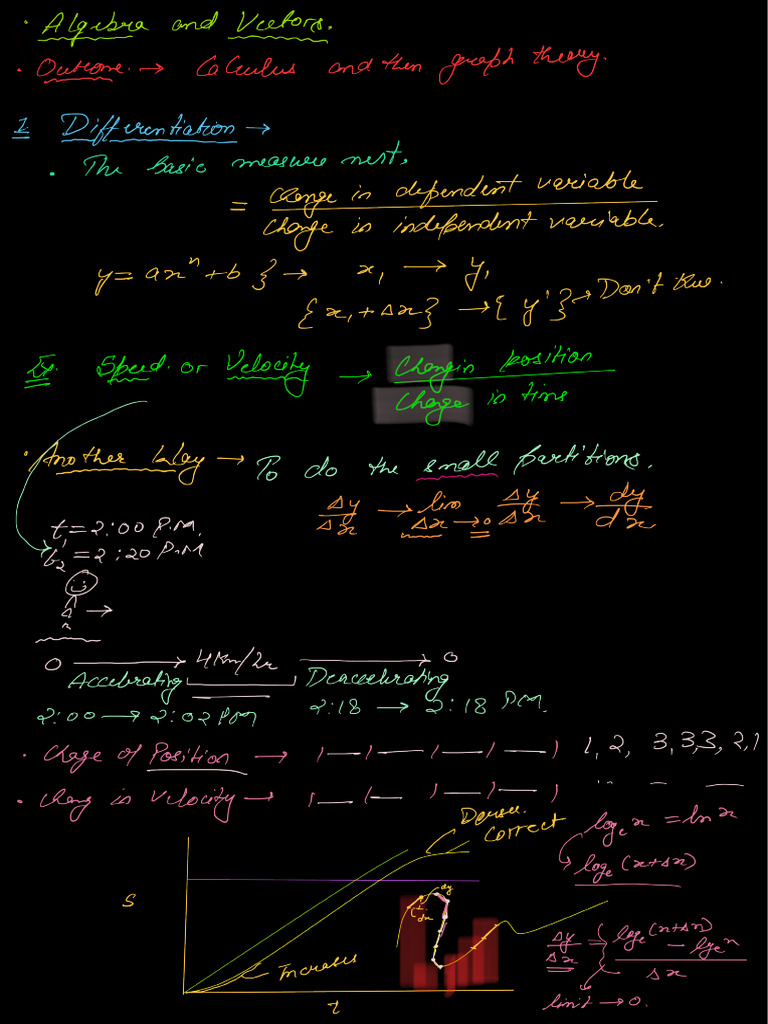 • Algebra and Vectors.
• Outcome. → Calculus and then graph theory.
1. Differentiation →
• The basic measure nest,
= change in dependent variable
change in independent variable.
y = axⁿ + b } → x₁ → y₁
{x₁ + Δx} → { y' } → Don't
Ex. Speed. or Velocity → Change in position
Change in time
• Another Way → To do the small partitions.
Δy/Δx → lim Δx → 0 Δy/Δx → dy/dx
t = 2:00 P.M.
t₂' = 2:20 P.M
0 → 4Km/2r → 0
Accelbrating Deaccelbrating
2:00 → 2:02 PM 2:18 → 2:18 P.M.
• Chage of Position → 1, 2, 3,3,3, 2,1
• Chang in Velocity →
Correct
logₑ x = ln x
logₑ (x+Δx)
S
dy
dx
Increases
t
Δy/Δx = { logₑ(x+Δx) – logₑx / Δx
limit → 0.